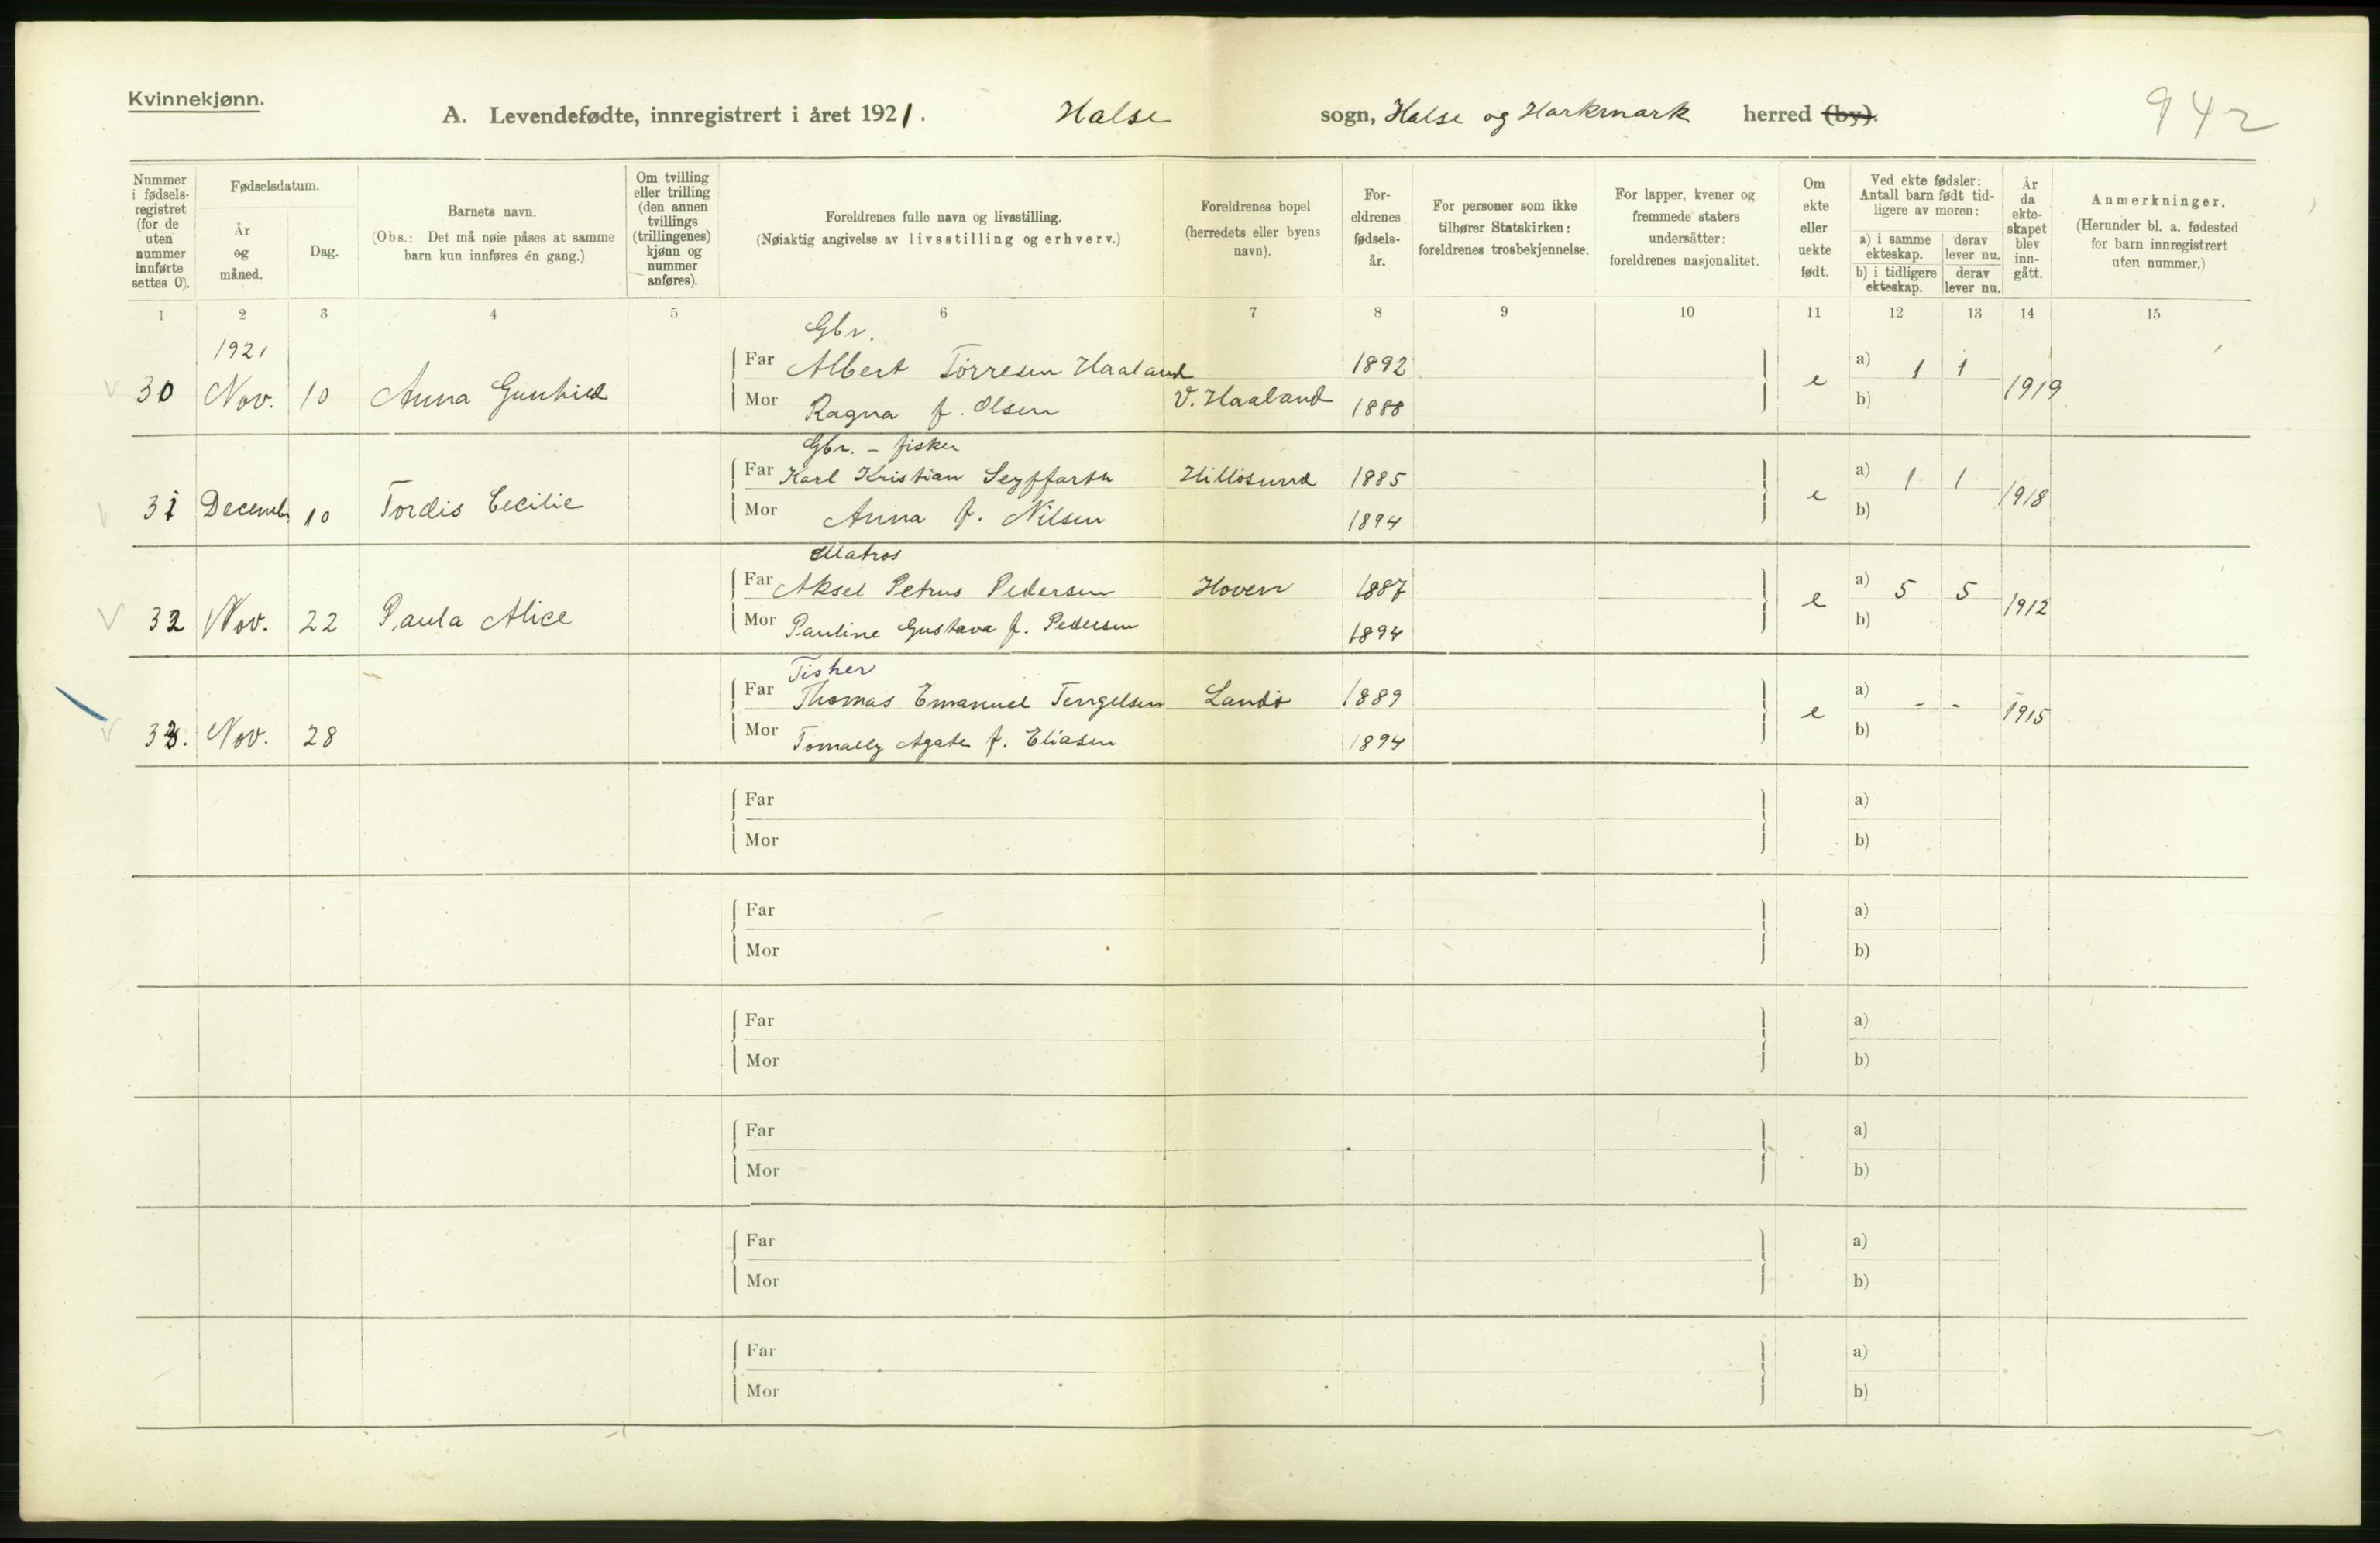 Kvinnekjønn.
A. Levendefødte, innregistrert i året 1921. Halse sogn, Halse og Harkmark herred (by).
942
Nummer i fødsels-registret (for de uten nummer innførte settes 0).
Fødselsdatum.
År og måned.
Dag.
Barnets navn.
(Obs.: Det må nøie påses at samme barn kun innføres én gang.)
Om tvilling eller trilling (den annen tvillings (trillingenes) kjønn og nummer anføres).
Foreldrenes fulle navn og livsstilling.
(Nøiaktig angivelse av livsstilling og erhverv.)
Foreldrenes bopel (herredets eller byens navn).
For-eldrenes fødsels-år.
For personer som ikke tilhører Statskirken: foreldrenes trosbekjennelse.
For lapper, kvener og fremmede staters undersåtter: foreldrenes nasjonalitet.
Om ekte eller uekte født.
Ved ekte fødsler: Antall barn født tid-ligere av moren:
a) i samme ekteskap.
derav lever nu.
b) i tidligere ekteskap.
derav lever nu.
År da ekte-skapet blev inn-gått.
Anmerkninger.
(Herunder bl. a. fødested for barn innregistrert uten nummer.)
1 2 3 4 5 6 7 8 9 10 11 12 13 14 15
1921
Gbr.
Far Albert Tørresen Haaland 1892 a) 1 1
30 Nov. 10 Anna Gunhild e 1919
Mor Ragna f. Olsen V. Haaland 1888 b)
Gbr. - fisker
Far Karl Kristian Seyffarth Hillösund 1885 a) 1 1
31 Decemb. 10 Tordis Cecilie e 1918
Mor Anna f. Nilsen 1894 b)
Matros
Far Aksel Petrus Pedersen Hoven 1887 a) 5 5
32 Nov. 22 Paula Alice e 1912
Mor Pauline Gustava f. Pedersen 1894 b)
Fisker
Far Thomas Emanuel Tengelsen Landö 1889 a) - -
33. Nov. 28 e 1915
Mor Agate f. Eliasen 1894 b)
Far a)
Mor b)
Far a)
Mor b)
Far a)
Mor b)
Far a)
Mor b)
Far a)
Mor b)
Far a)
Mor b)